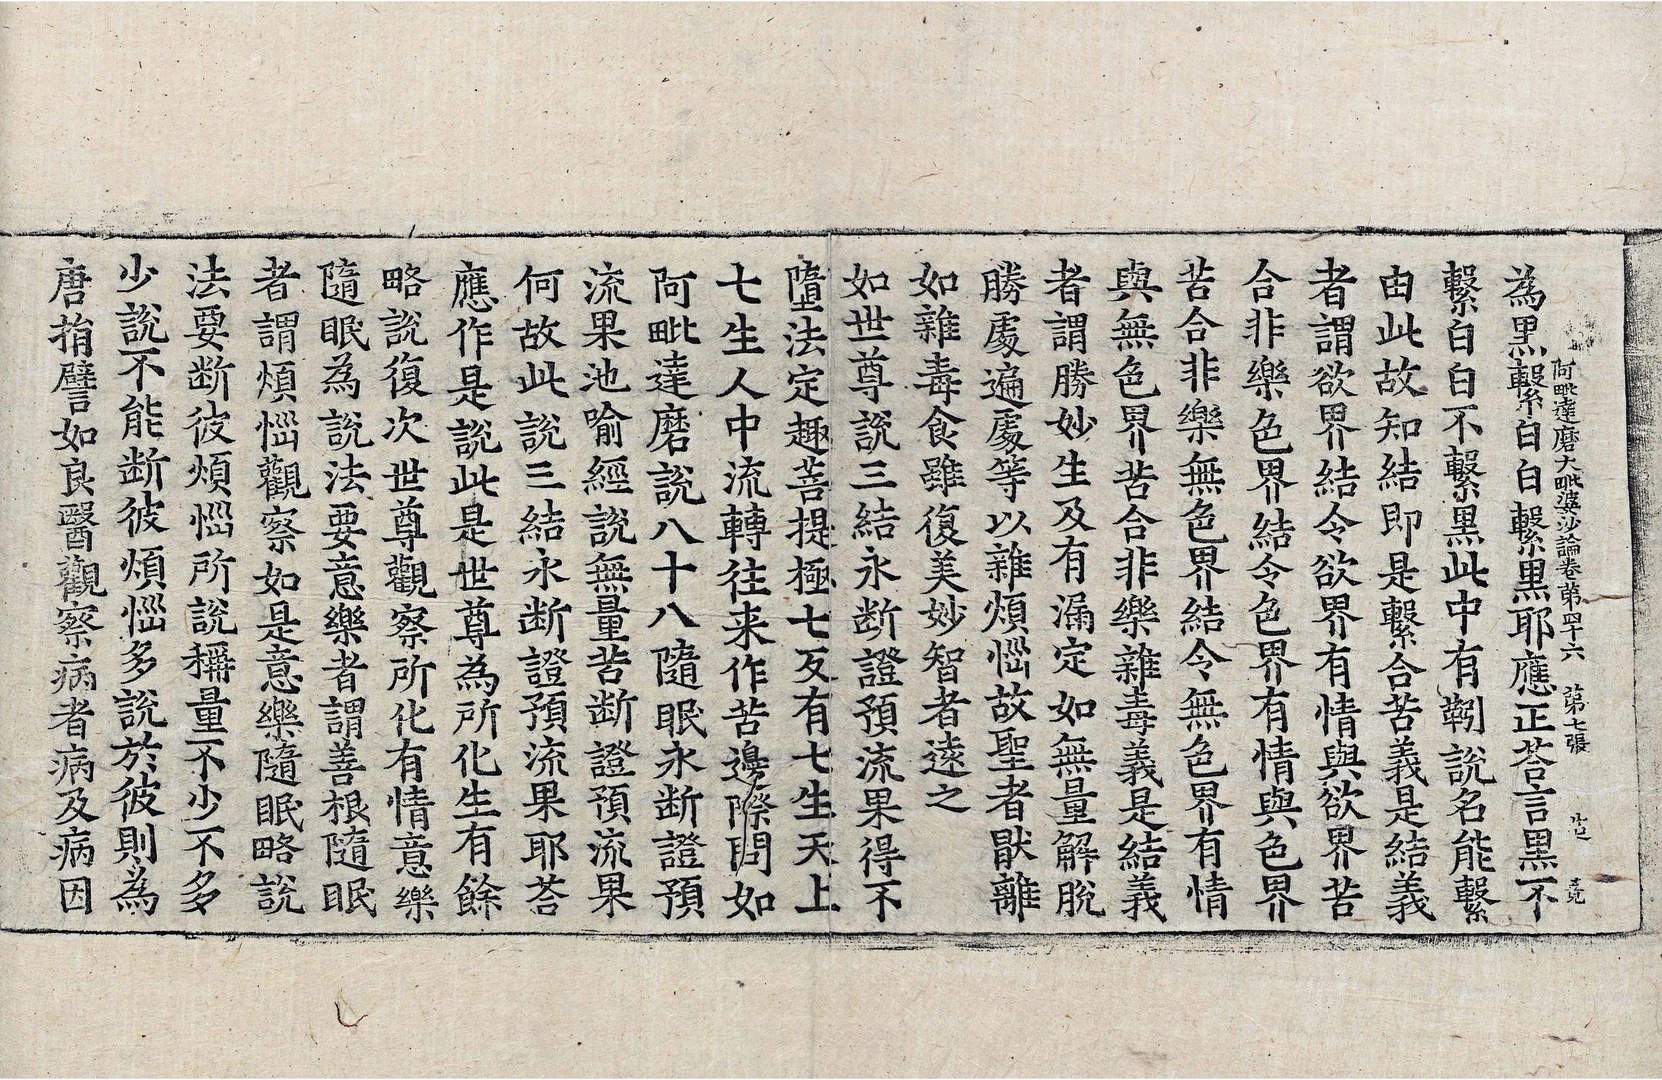 阿毗達磨大毗婆沙論卷第四十六 第七張
為黒繫白白繫黒耶應正荅言黒不
繫白白不繫黒此中有靷說名能繫
由此故知結即是繫合苦義是結義
者謂欲界結令欲界有情與欲界苦
合非樂色界結令色界有情與色界
苦合非樂無色界結令無色界有情
與無色界苦合非樂雜毒義是結義
者謂勝妙生及有漏定如無量解脫
勝處遍處等以雜煩惱故聖者猒離
如雜毒食雖復美妙智者遠之
如世尊說三結永断證預流果得不
墮法定趣菩提極七反有七生天上
七生人中流轉往来作苦邊際問如
阿毗達磨說八十八隨眠永断證預
流果池喻經說無量苦断證預流果
何故此說三結永断證預流果耶荅
應作是說此是世尊為所化生有餘
略說復次世尊觀察所化有情意樂
隨眠為說法要意樂者謂善根隨眠
者謂煩惱觀察如是意樂隨眠略說
法要断彼煩惱所說稱量不少不多
少說不能断彼煩惱多說於彼則為
唐捐譬如良醫觀察病者病及病因